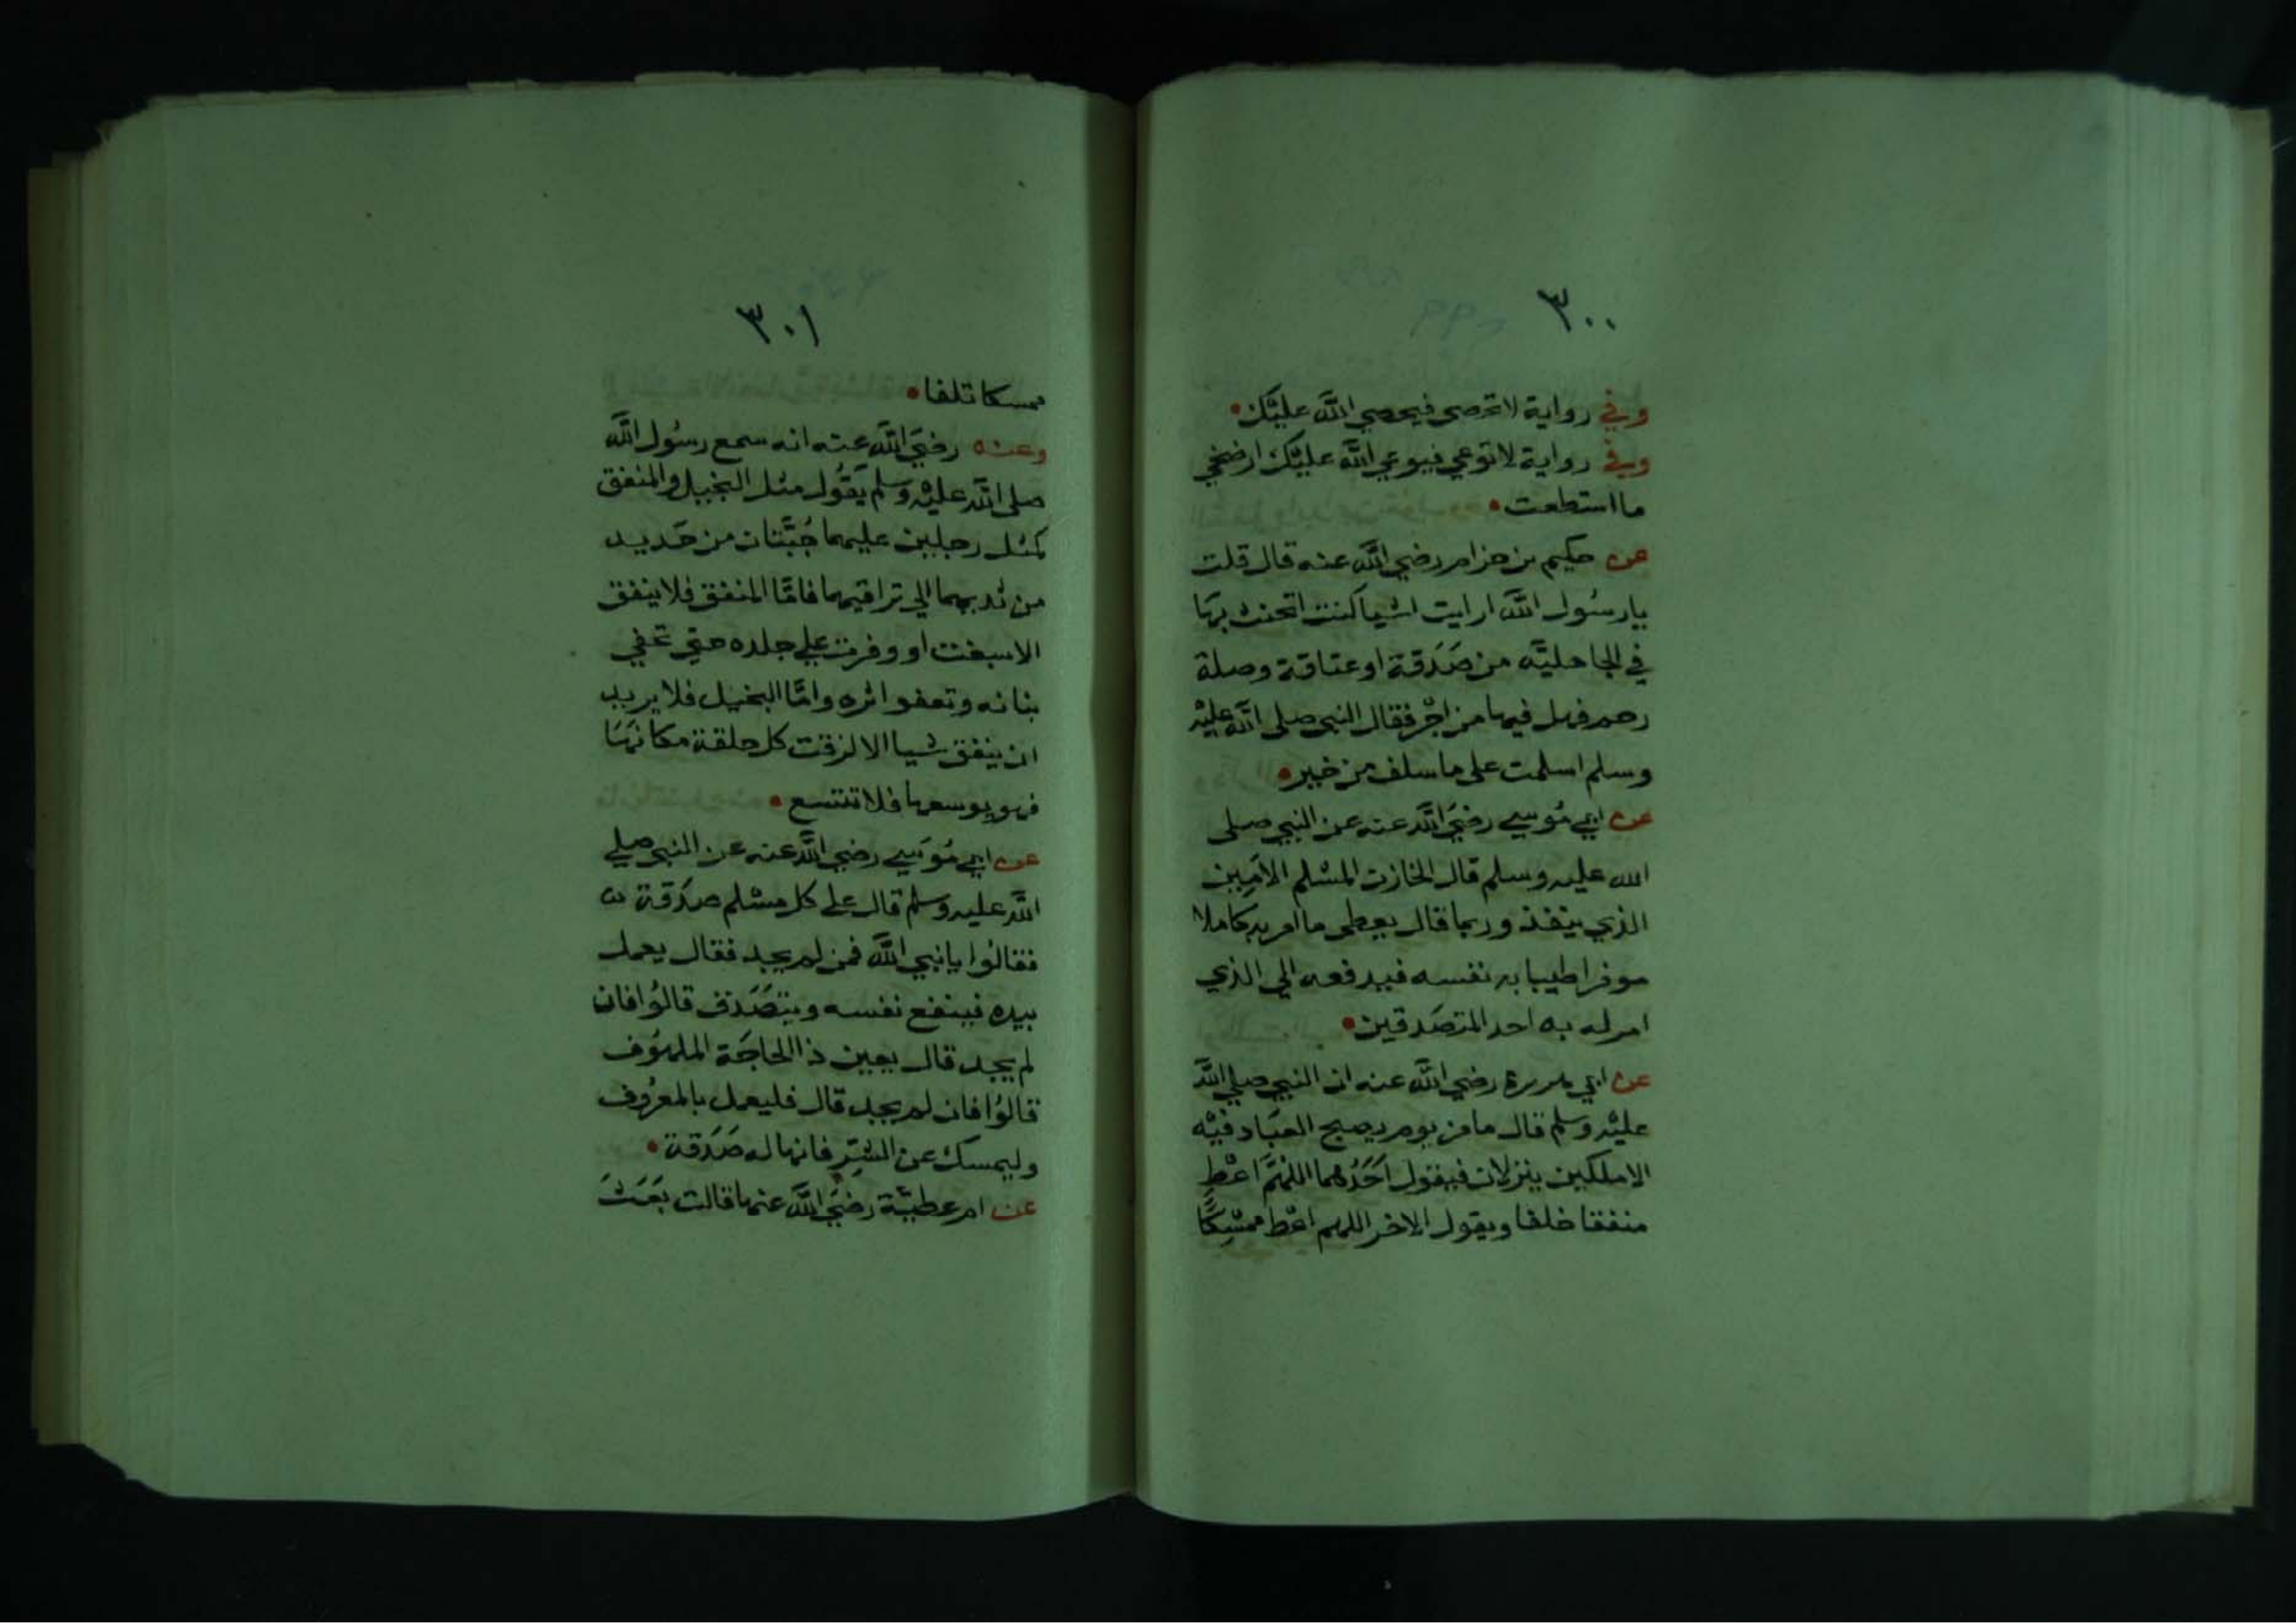 ٣٠٠
وفي رواية لا تحصي فيحصي الله عليك
وفي رواية لا توعي فيوعي الله عليك ارضخي
ما استطعت
عن حكيم بن حزام رضي الله عنه قال قلت
يا رسُول الله ارايت اشيا كنت اتحنث بها
في الجاهليّه من صَدَقة او عتاقة وصلة
رحم فهل فيها من اجْر فقال النبي صلى الله عليْه
وسلم اسلمت على ما سلف من خير
عن ابي مُوسي رضيَ الله عنه عن النبي صلى
الله عليه وسلم قال الخازن المسْلم الاَمِين
الذي ينفذ وربما قال يعطى ما امر به كاملا
موفرا طيبا به نفسه فيدفعه الي الذي
امر له به احد المتصَدقين
عن ابي هريرة رضي الله عنه ان النبي صلي الله
عليْه وسلم قال ما من يوم يصبح العبَاد فيْه
الا ملكين ينزلان فيقول اَحَدُهما اللهمَّ اعْطِ
منفقا خلفا ويقول الاخر اللهم اعْط ممسْكًا
٣٠١
ممسكا تلفا
وعنه رضيَ الله عنه انه سمع رسُول الله
صلى الله عليْه وسلم يَقُول مثل البخيل والمنفق
كمثل رجلين عليهما جُبّتان من حَديد
من ثديهما الي تراقيهما فامّا المنفق فلا ينفق
الا سبغت او وفرت علي جلده حتي تخفي
بنانه وتعفو اثره وامّا البخيل فلا يريد
ان ينفق شيا الا لزقت كل حلقة مكانهَا
فهو يوسعها فلا تتسع
عن ابي مُوسَي رضي الله عنه عن النبي صلي
الله عليه وسلم قال علي كل مسْلم صدَقة
فقالوا يا نبي الله فمن لم يجد فقال يعمل
بيده فينفع نفسه ويتصَدق قالوُا فان
لم يجد قال يعين ذا الحاجَة الملهوُف
قالوُا فان لم يجد قال فليعمل بالمعرُوف
وليمسك عن الشرّ فانها له صَدَقة
عن ام عطيّة رضيَ الله عنها قالت بَعَثَ